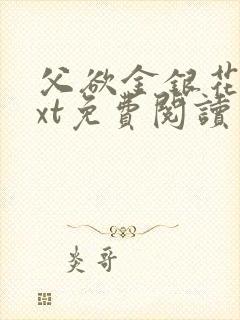 父欲金银花
xt免費閱讀
炎哥